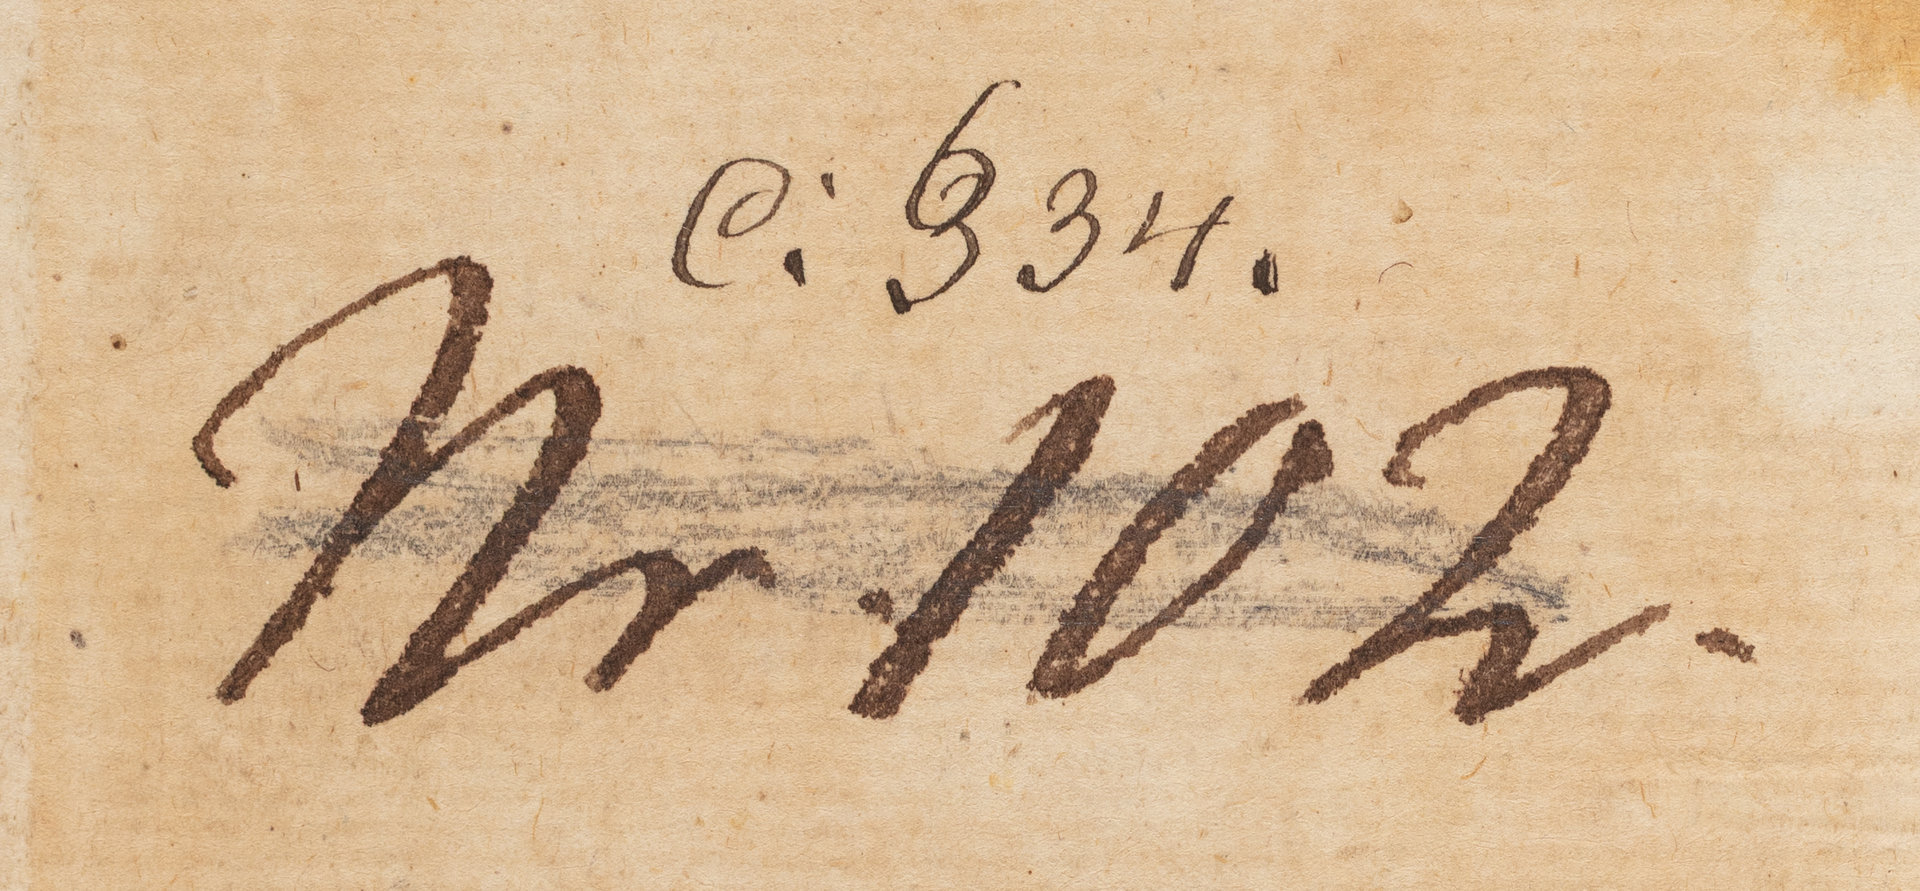 C: 334.
Nr. 102.